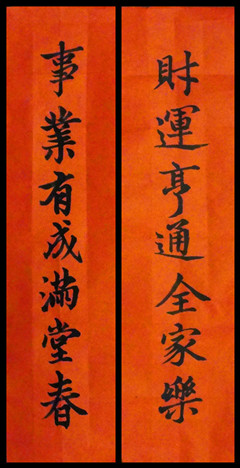 財運亨通全家樂
事業有成滿堂春